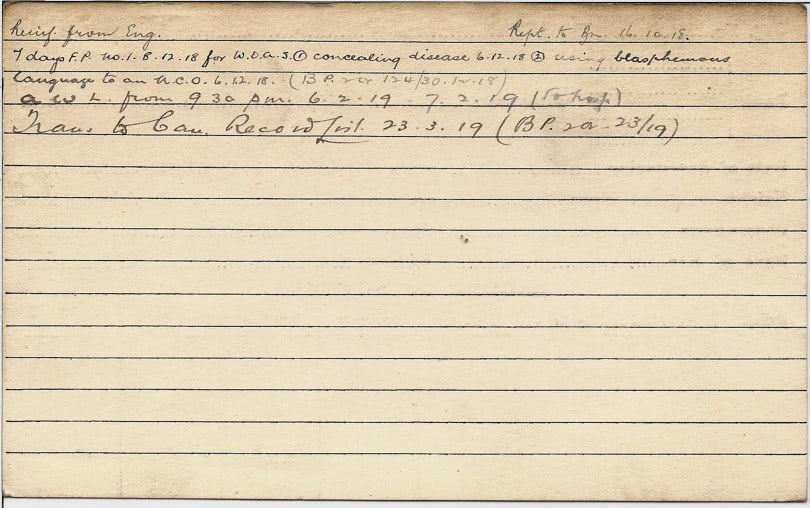 Reinf. from Eng. Rept. to Bn. 16.10.18.
7 days F.P. No.1. 8.12.18 for W.O.A.S. ① concealing disease 6.12.18 ② using blasphemous
language to an N.C.O. 6.12.18. (B.P. 2 or 124/30.12.18)
a w L. from 9 30 pm. 6.2.19 - 7.2.19 (To hosp)
Trans to Can. Record List. 23.3.19 (B.P. 2 or 23/19)